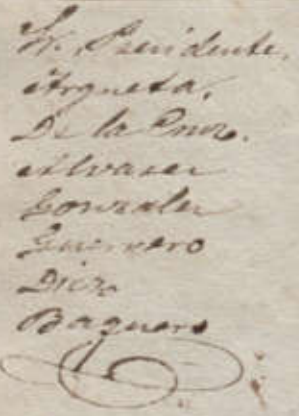 Sr. Presidente.
Argueta.
De la Cruz.
Alvarez
Gonzalez
Guerrero
Diez
Baquero